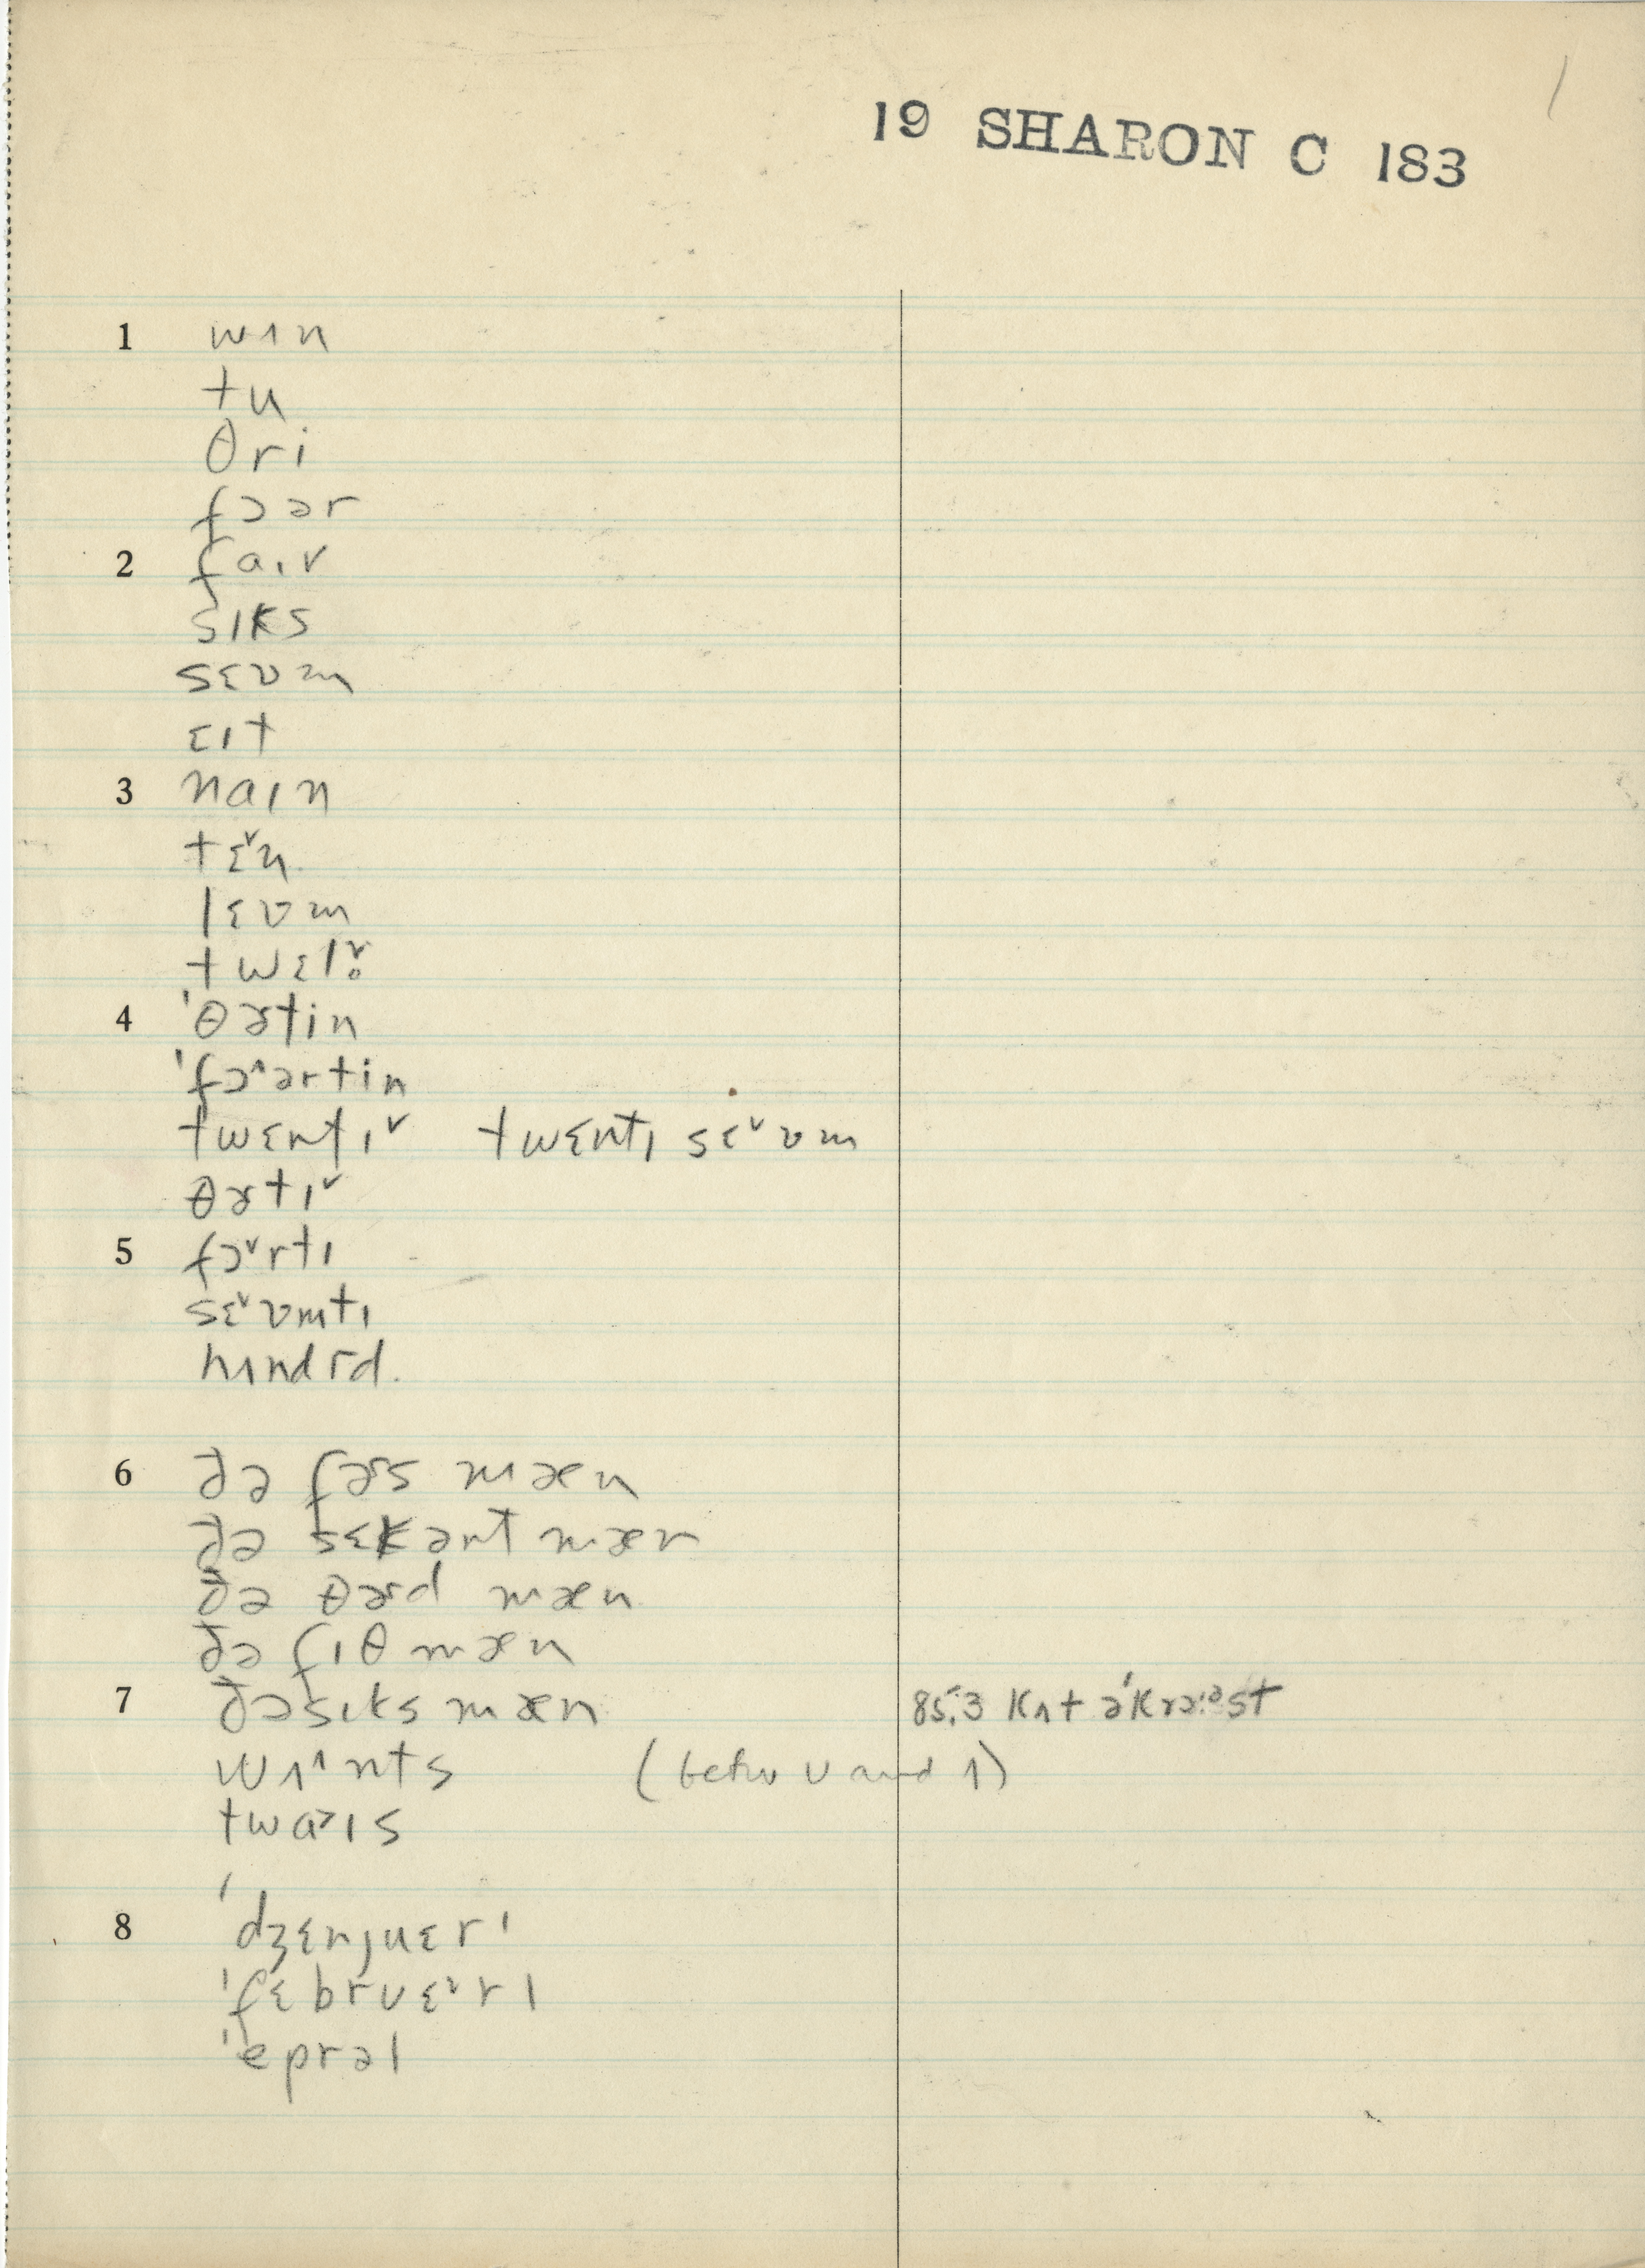 1
19 SHARON C 183
1 wʌn
tu
θri
fɔər
2 faɪv
sɪks
sɛvm
ɛɪt
3 naɪn
tɛ˅n
lɛvm
twɛlv̥
4 'θɚtin
'fɔ˄ərtin
twɛntɪ˅ twɛntɪ sɛ˅vm
θɚtɪ˅
5 fɔ˅rtɪ
sɛ˅vmtɪ
hʌndrd.
6 ðə fɚs mæn
ðə sɛkənt mæn
ðə θɚd mæn
ðə fɪθ mæn
7 ðə sɪks mæn 85.3 kʌt ə'krɔ:əst
wʌ˄nts (betw ʊ and ʌ)
twa˃ɪs
8 'dʒɛnjuɛrɪ
'fɛbrʊɛ˅rɪ
'eprəl